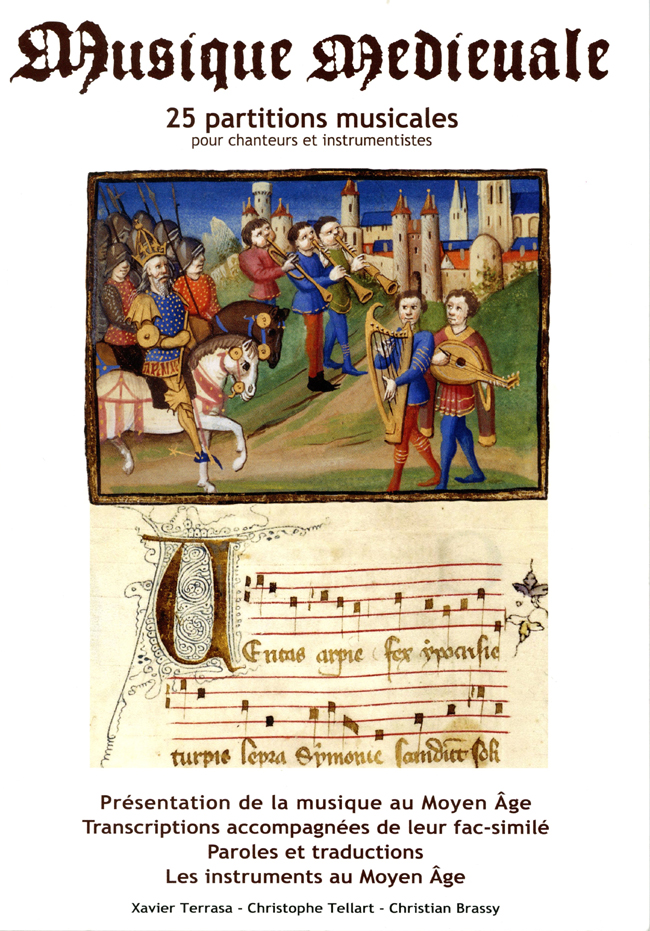 Musique Medievale
25 partitions musicales
pour chanteurs et instrumentistes
Ventus arpie fex ypocrisie
turpis lepra Symonie
Présentation de la musique au Moyen Âge
Transcriptions accompagnées de leur fac-similé
Paroles et traductions
Les instruments au Moyen Âge
Xavier Terrasa - Christophe Tellart - Christian Brassy